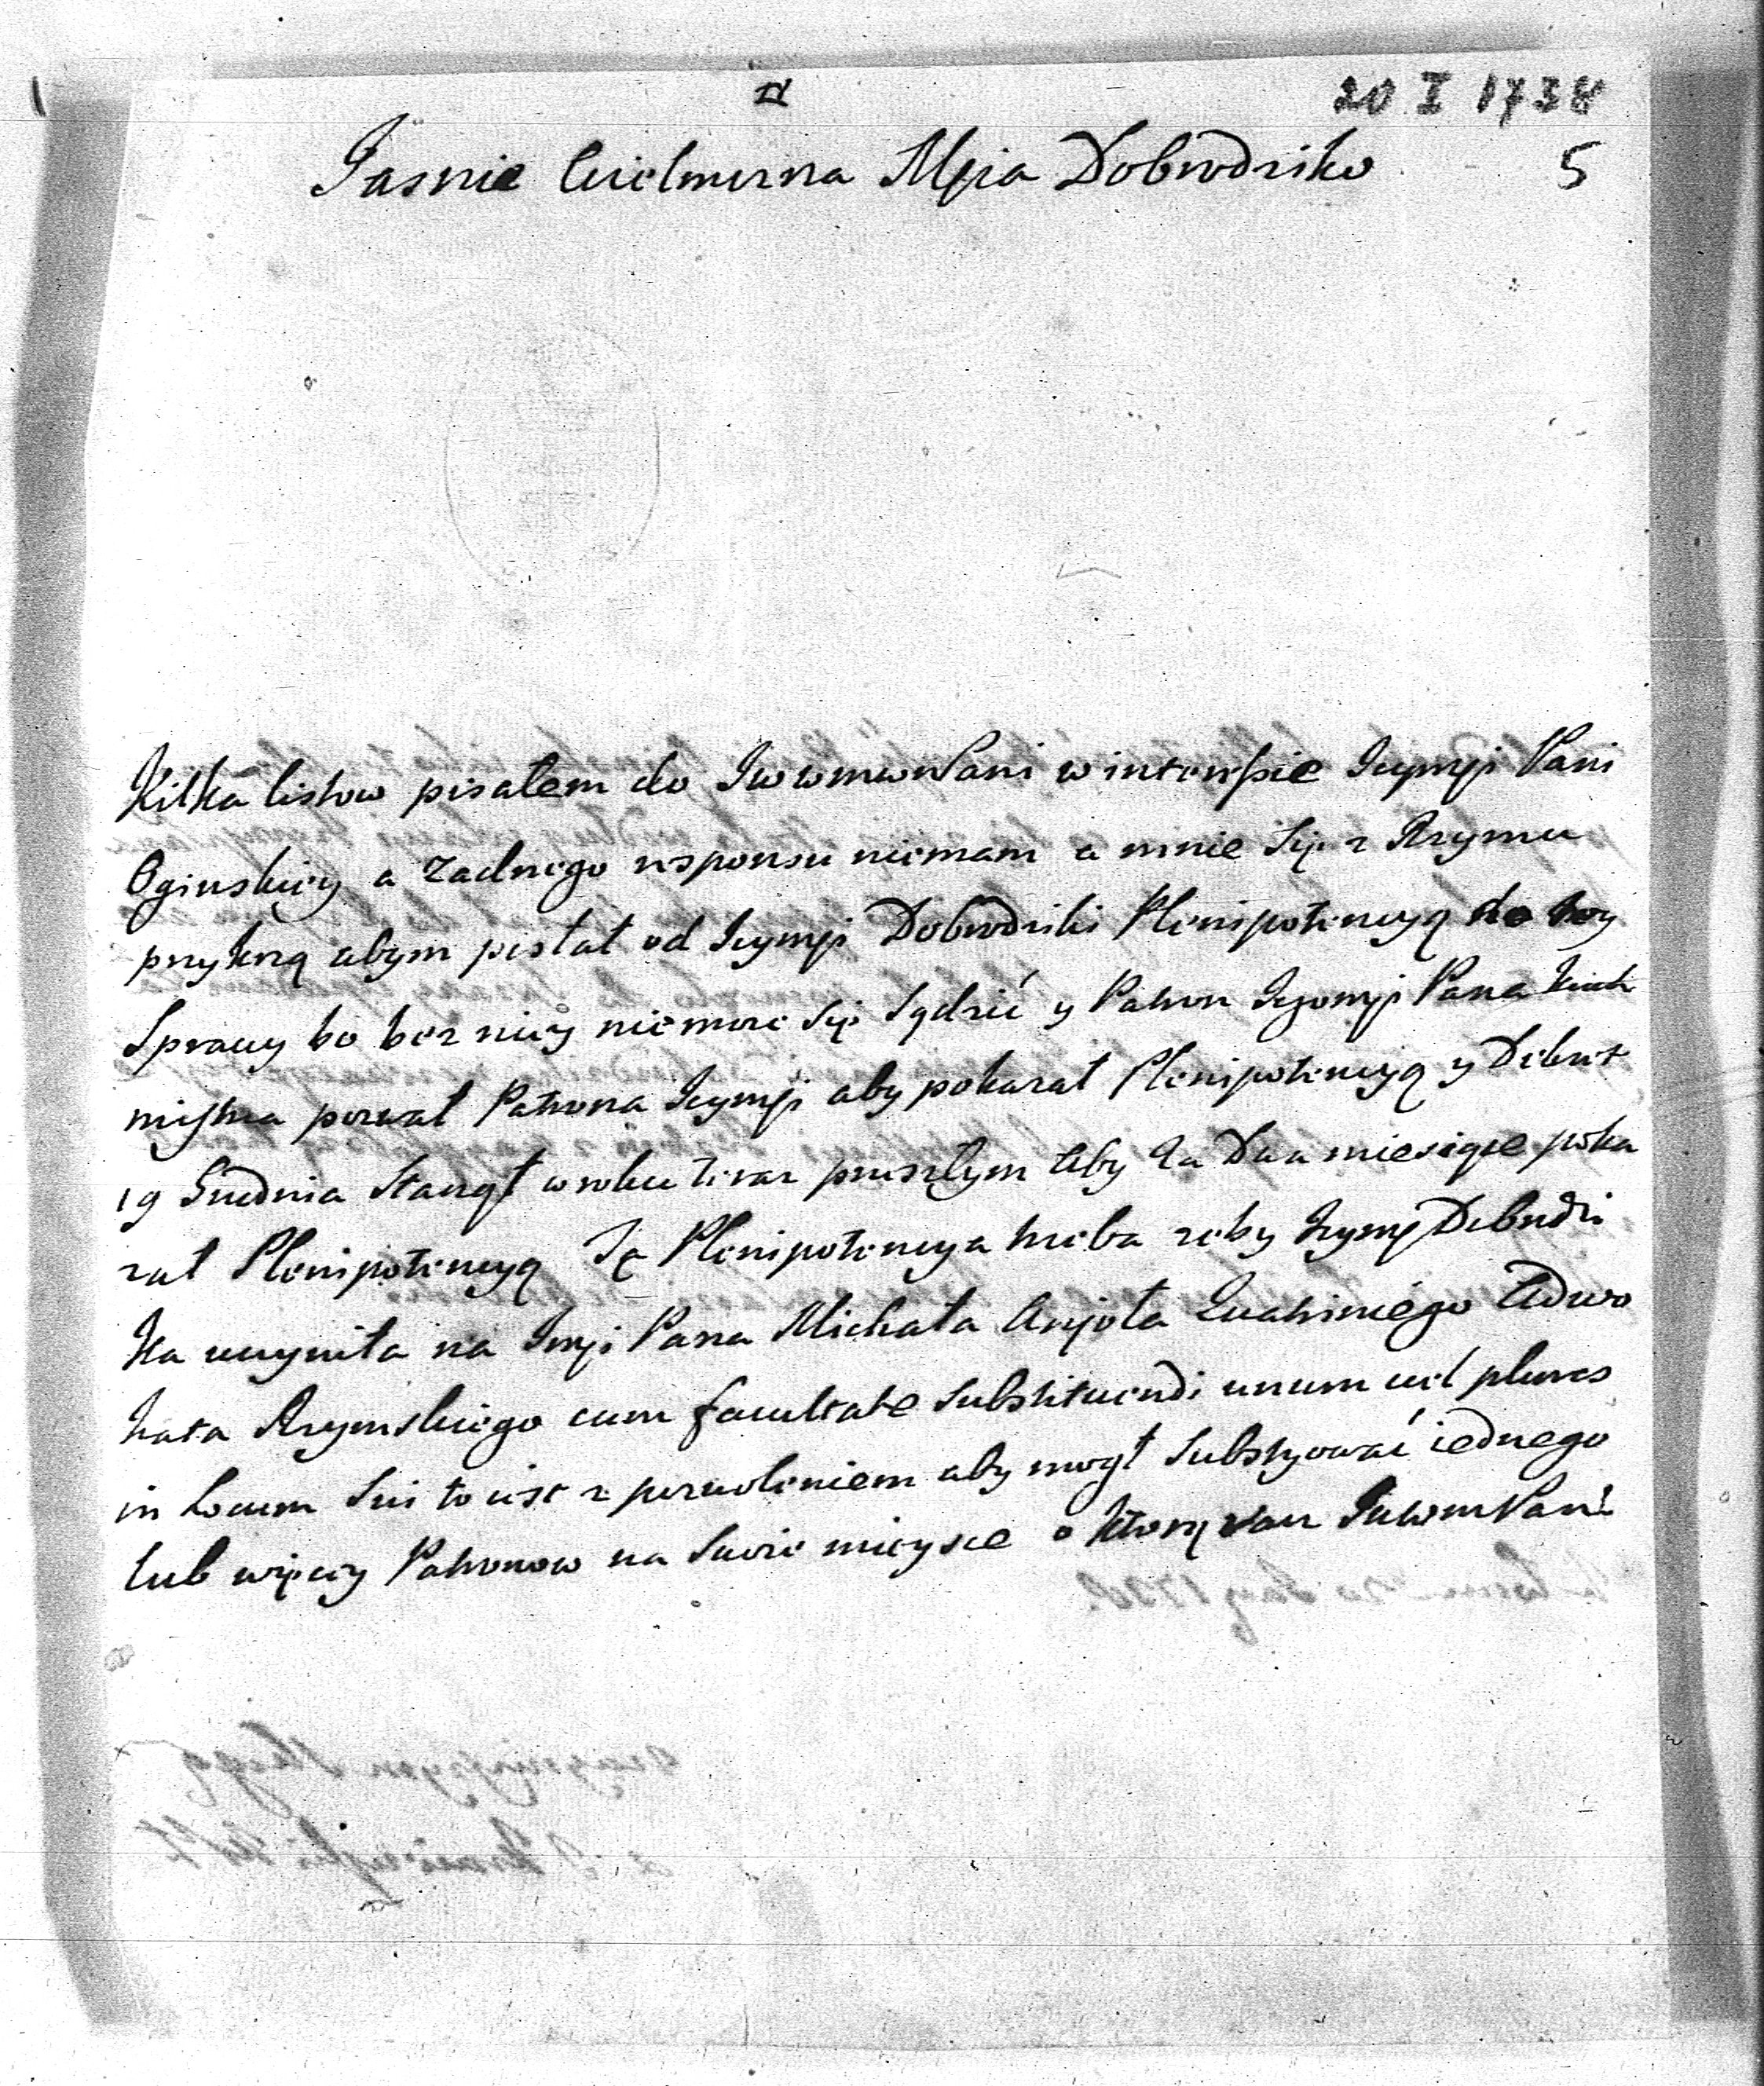 20 I 1738
5
Jasnie Wielmozna Mścia Dobrodziko
Kilka listow pisałem do JWWMWPani w interessie Jeymści Pani
Oginskiey a zadnego responsu niemam a mnie się z Rzymu
przykrzą abym posłał od Jeymści Dobrodziki Plenipotencyą do tey
Sprawy bo bez niey niemoze się Sądzić y Patron Jegomści Pana Kuch
mistrza pozwał Patrona Jeymści aby pokazał Plenipotencyą y Dekret
19 Grudnia Stanął w roku teraz przeszłym Aby za Dwa miesiące poka
zał Plenipotencyą Ta Plenipotencya trzeba zeby Jeymść Dobrodzi
ka uczyniła na Jmści Pana Michała Anjoła Adwo
kata Rzymskiego cum facultate Substituendi unum vel plures
in Locum Sui to iest z pozwoleniem aby mogł Substytować iednego
lub więcey Patronow na Swoie mieysce o ktorą JWWMPani